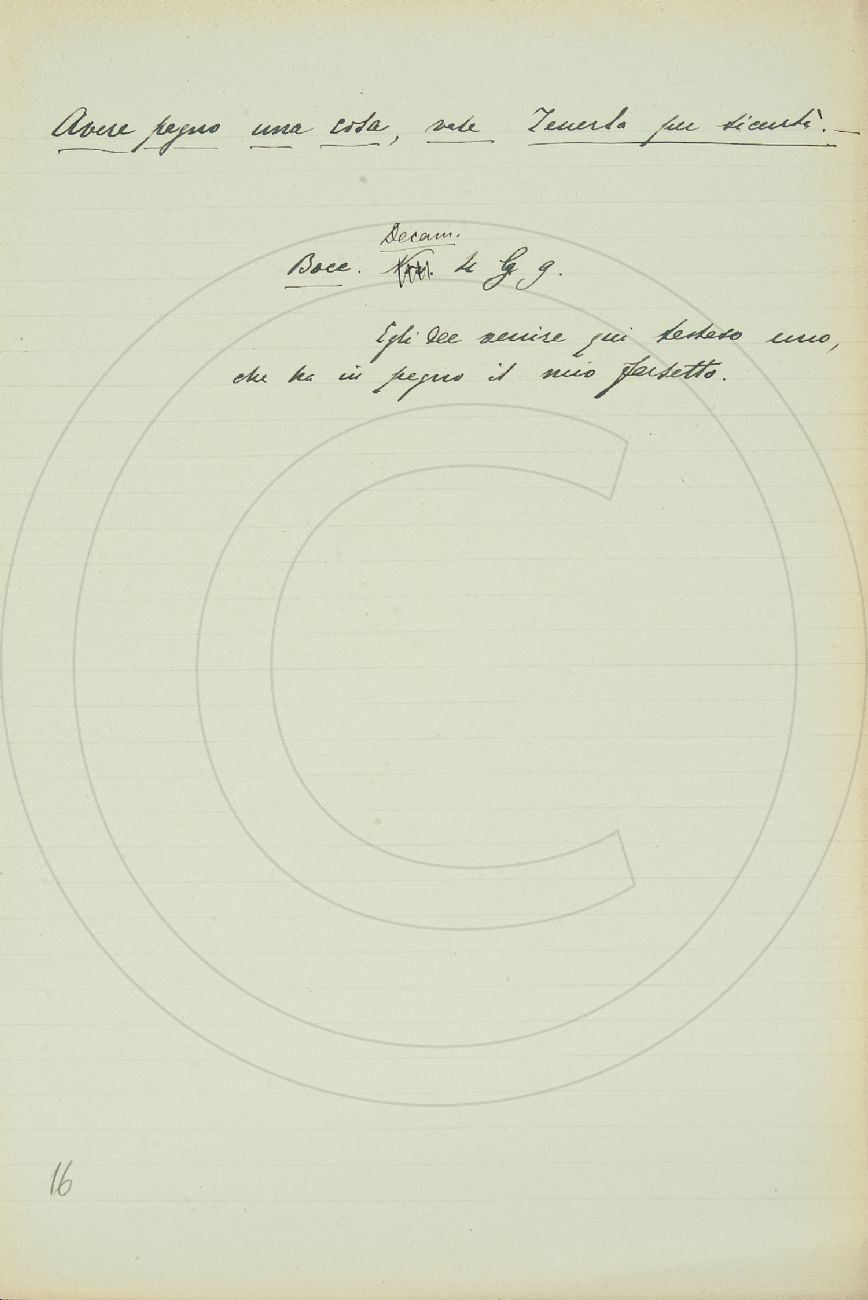 Avere pegno una cosa, vale Tenerla per sicurtà. —
Decam.
Bocc. g 9.
Egli dee venire qui testeso uno,
che ha in pegno il mio farsetto.
16